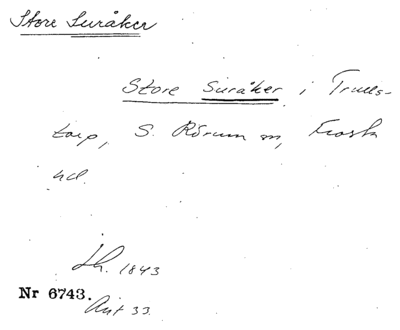 Store Suråker
Store Suråker i Trulls-
torp, S. Rörum sn, Frosta
hd.
Lh. 1843
Nr 6743.
Akt 33.